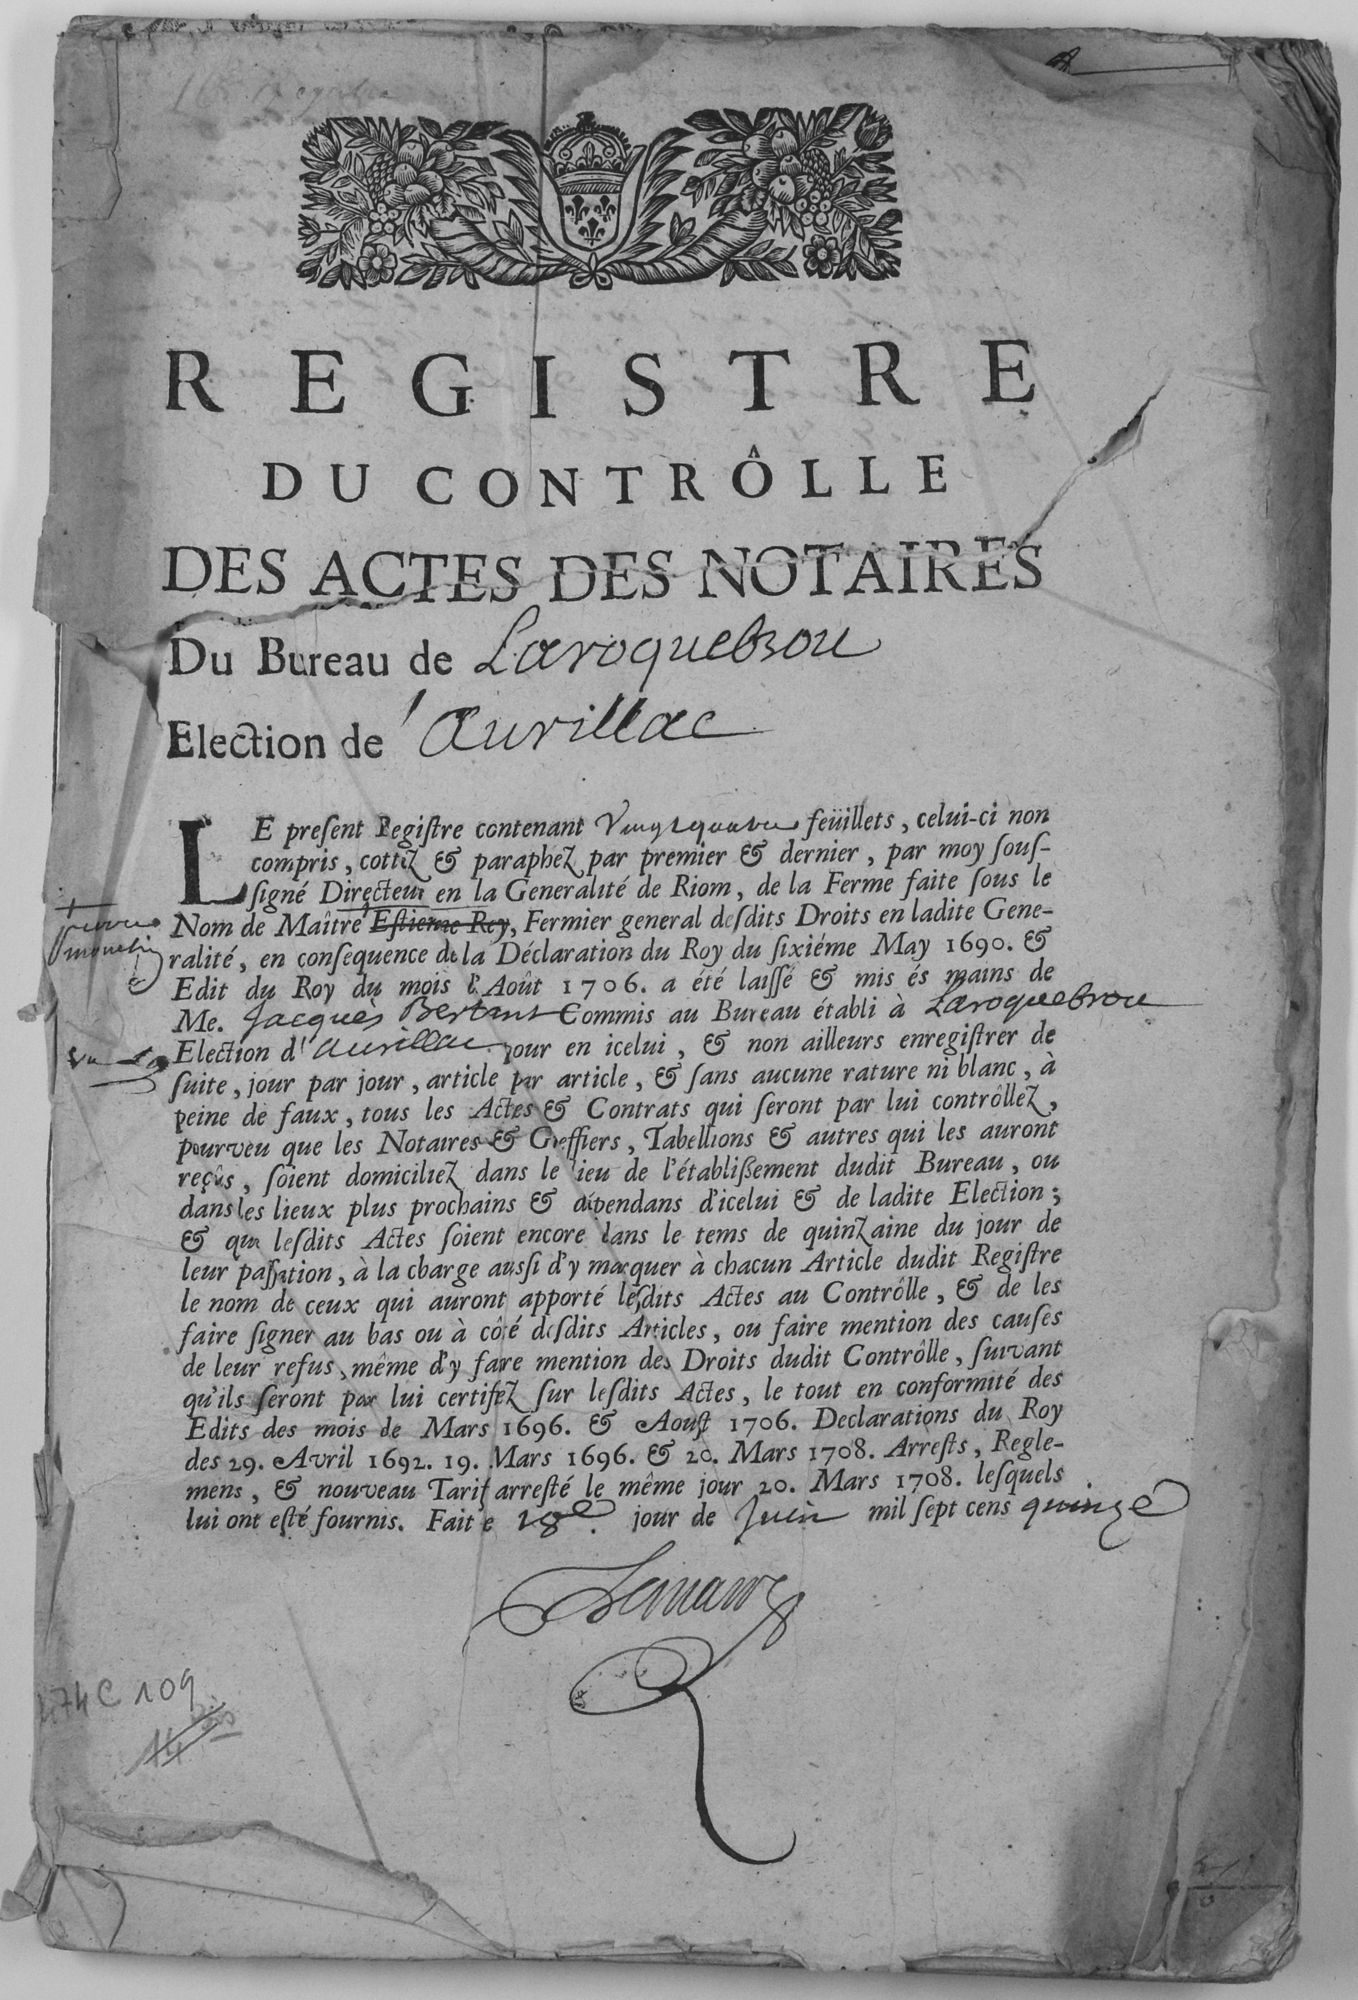 REGISTRE
DU CONTRÔLLE
DES ACTES DES NOTAIRES
Du Bureau de Laroquebrou
Election de Aurillac
LE present Registre contenant Vingtquatre feüillets, celui-ci non
compris, cottez & paraphez par premier & dernier, par moy sous-
signé Directeur en la Generalité de Riom, de la Ferme faite sous le
Nom de Maître Estienne Rey, Fermier general desdits Droits en ladite Gene-
ralité, en consequence de la Déclaration du Roy du sixiéme May 1690. &
Edit du Roy du mois d'Août 1706. a été laissé & mis és mains de
Me. Jacques Bertant Commis au Bureau établi à Laroquebrou
Election d'aurillac pour en icelui, & non ailleurs enregistrer de
suite, jour par jour, article par article, & sans aucune rature ni blanc, à
peine de faux, tous les Actes & Contrats qui seront par lui contrôllez,
pourveu que les Notaires & Greffiers, Tabellions & autres qui les auront
reçûs, soient domiciliez dans le lieu de l'établissement dudit Bureau, ou
dans les lieux plus prochains & dépendans d'icelui & de ladite Election;
& que lesdits Actes soient encore dans le tems de quinzaine du jour de
leur passation, à la charge aussi d'y marquer à chacun Article dudit Registre
le nom de ceux qui auront apporté lesdits Actes au Contrôlle, & de les
faire signer au bas ou à côté desdits Articles, ou faire mention des causes
de leur refus, même d'y faire mention des Droits dudit Contrôlle, suivant
qu'ils seront par lui certifez sur lesdits Actes, le tout en conformité des
Edits des mois de Mars 1696. & Aoust 1706. Declarations du Roy
des 29. Avril 1692. 19. Mars 1696. & 20. Mars 1708. Arrests, Regle-
mens, & nouveau Tarif arresté le même jour 20. Mars 1708. lesquels
lui ont esté fournis. Fait e 18e. jour de Juin mil sept cens quinze
274C 109
14 bis